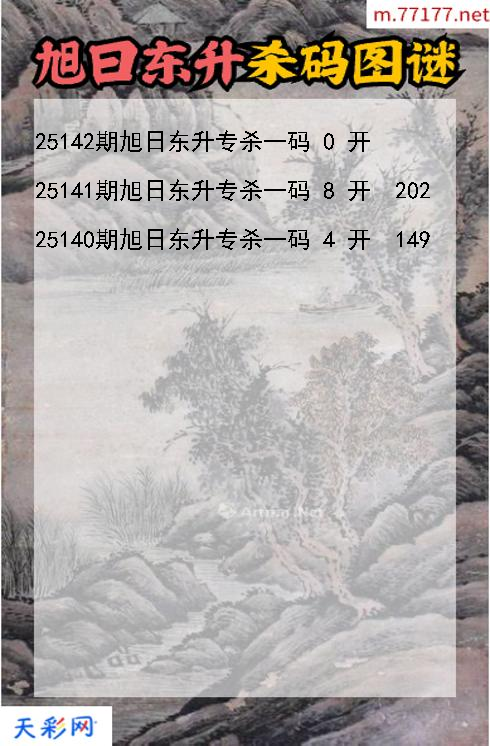 m.77177.net
旭日东升杀码图谜
25142期旭日东升专杀一码 0 开
25141期旭日东升专杀一码 8 开 202
25140期旭日东升专杀一码 4 开 149
天彩网